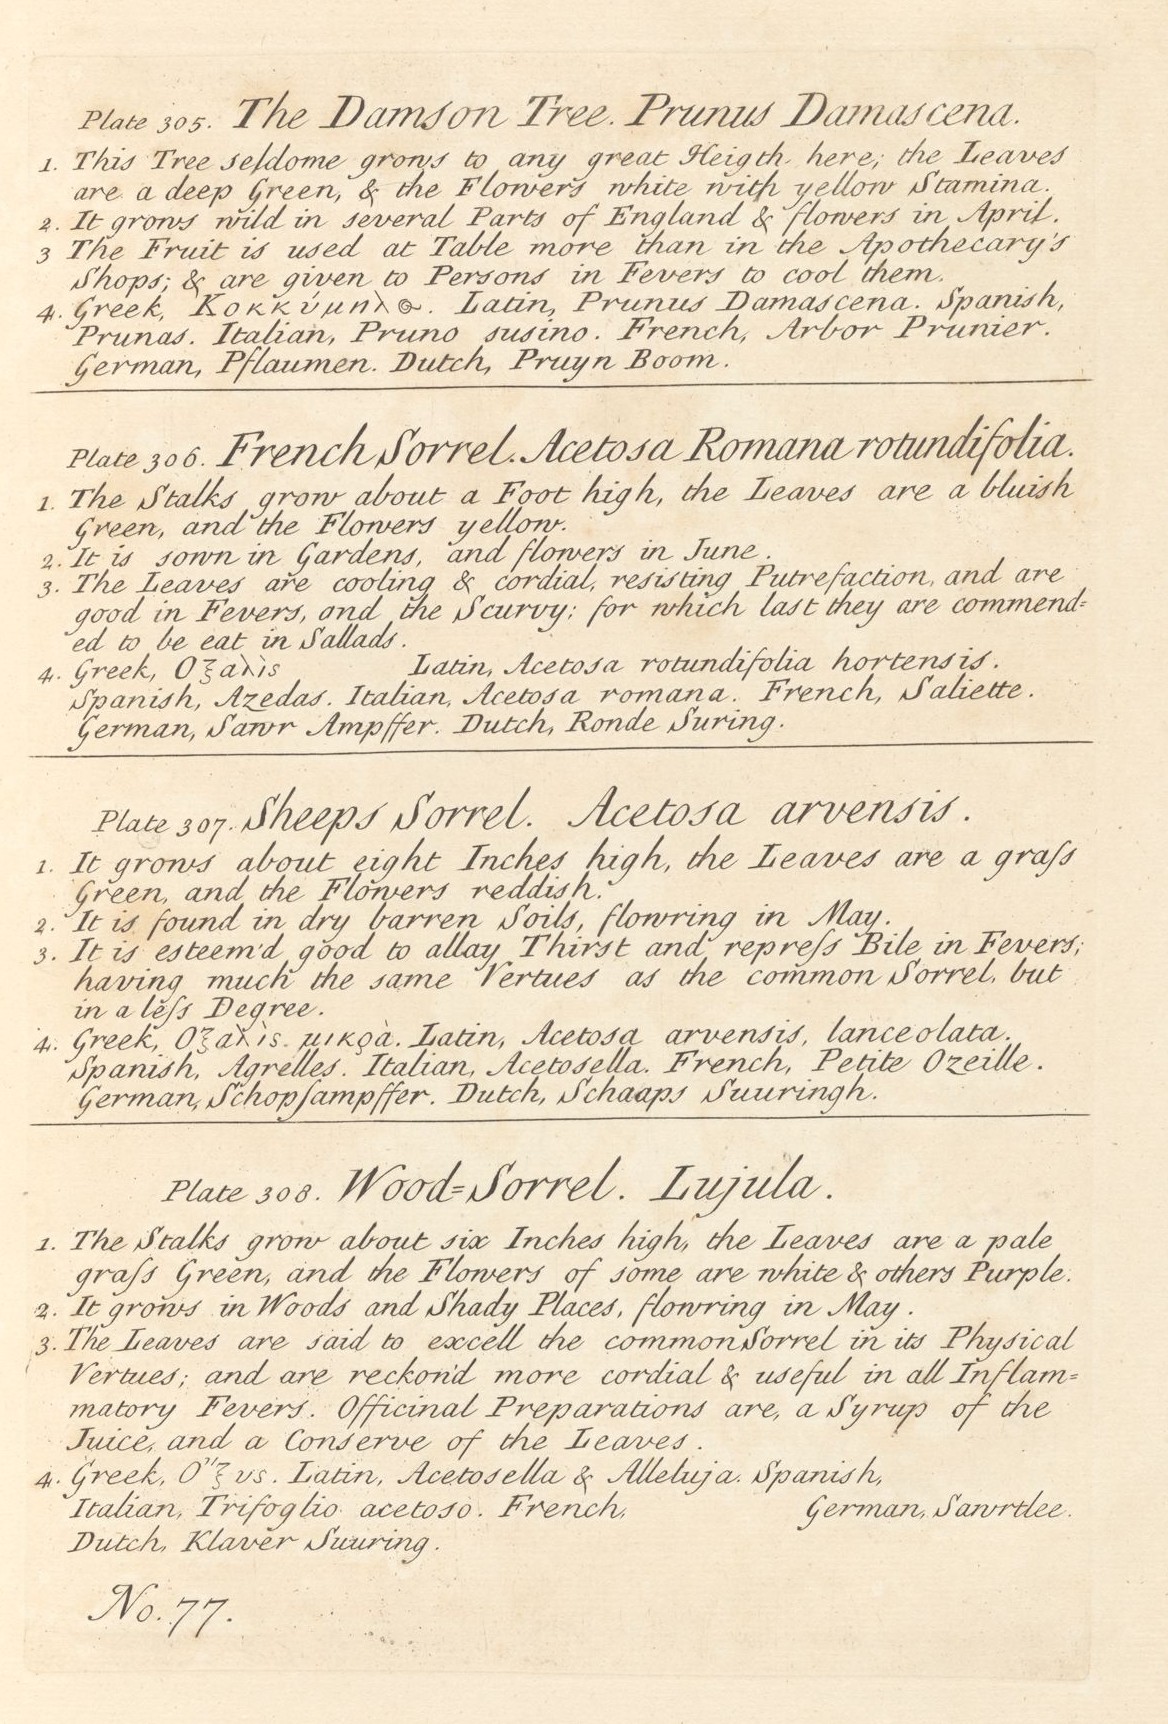 Plate 305. The Damson Tree. Prunus Damascena.
1. This Tree seldome grows to any great Heigth here; the Leaves
are a deep Green, & the Flowers white with yellow Stamina.
2. It grows wild in several Parts of England & flowers in April.
3 The Fruit is used at Table more than in the Apothecary's
Shops; & are given to Persons in Fevers to cool them.
4. Greek, Κοκκύμηλος. Latin, Prunus Damascena. Spanish,
Prunas. Italian, Pruno susino. French, Arbor Prunier.
German, Pflaumen. Dutch, Pruyn Boom.
Plate 306. French Sorrel. Acetosa Romana rotundifolia.
1. The Stalks grow about a Foot high, the Leaves are a bluish
Green, and the Flowers yellow.
2. It is sown in Gardens, and flowers in June.
3. The Leaves are cooling & cordial, resisting Putrefaction, and are
good in Fevers, and the Scurvy; for which last they are commend=
ed to be eat in Sallads.
4. Greek, Οξαλὶς Latin, Acetosa rotundifolia hortensis.
Spanish, Azedas. Italian, Acetosa romana. French, Saliette.
German, Sawr Ampffer. Dutch, Ronde Suring.
Plate 307. Sheeps Sorrel. Acetosa arvensis.
1. It grows about eight Inches high, the Leaves are a graſs
Green, and the Flowers reddish.
2. It is found in dry barren Soils, flowring in May.
3. It is esteem'd good to allay Thirst and repreſs Bile in Fevers;
having much the same Vertues as the common Sorrel, but
in a leſs Degree.
4. Greek, Οξαλὶς μικρὰ. Latin, Acetosa arvensis, lanceolata.
Spanish, Agrelles. Italian, Acetosella. French, Petite Ozeille.
German, Schopſampffer. Dutch, Schaaps Suuringh.
Plate 308. Wood=Sorrel. Lujula.
1. The Stalks grow about six Inches high, the Leaves are a pale
graſs Green, and the Flowers of some are white & others Purple.
2. It grows in Woods and Shady Places, flowring in May.
3. The Leaves are said to excell the common Sorrel in its Physical
Vertues; and are reckon'd more cordial & useful in all Inflam=
matory Fevers. Officinal Preparations are, a Syrup of the
Juice, and a Conserve of the Leaves.
4. Greek, Ο"ξυς. Latin, Acetosella & Alleluja. Spanish,
Italian, Trifoglio acetoso. French, German, Sawrtlee.
Dutch, Klaver Suuring.
No. 77.